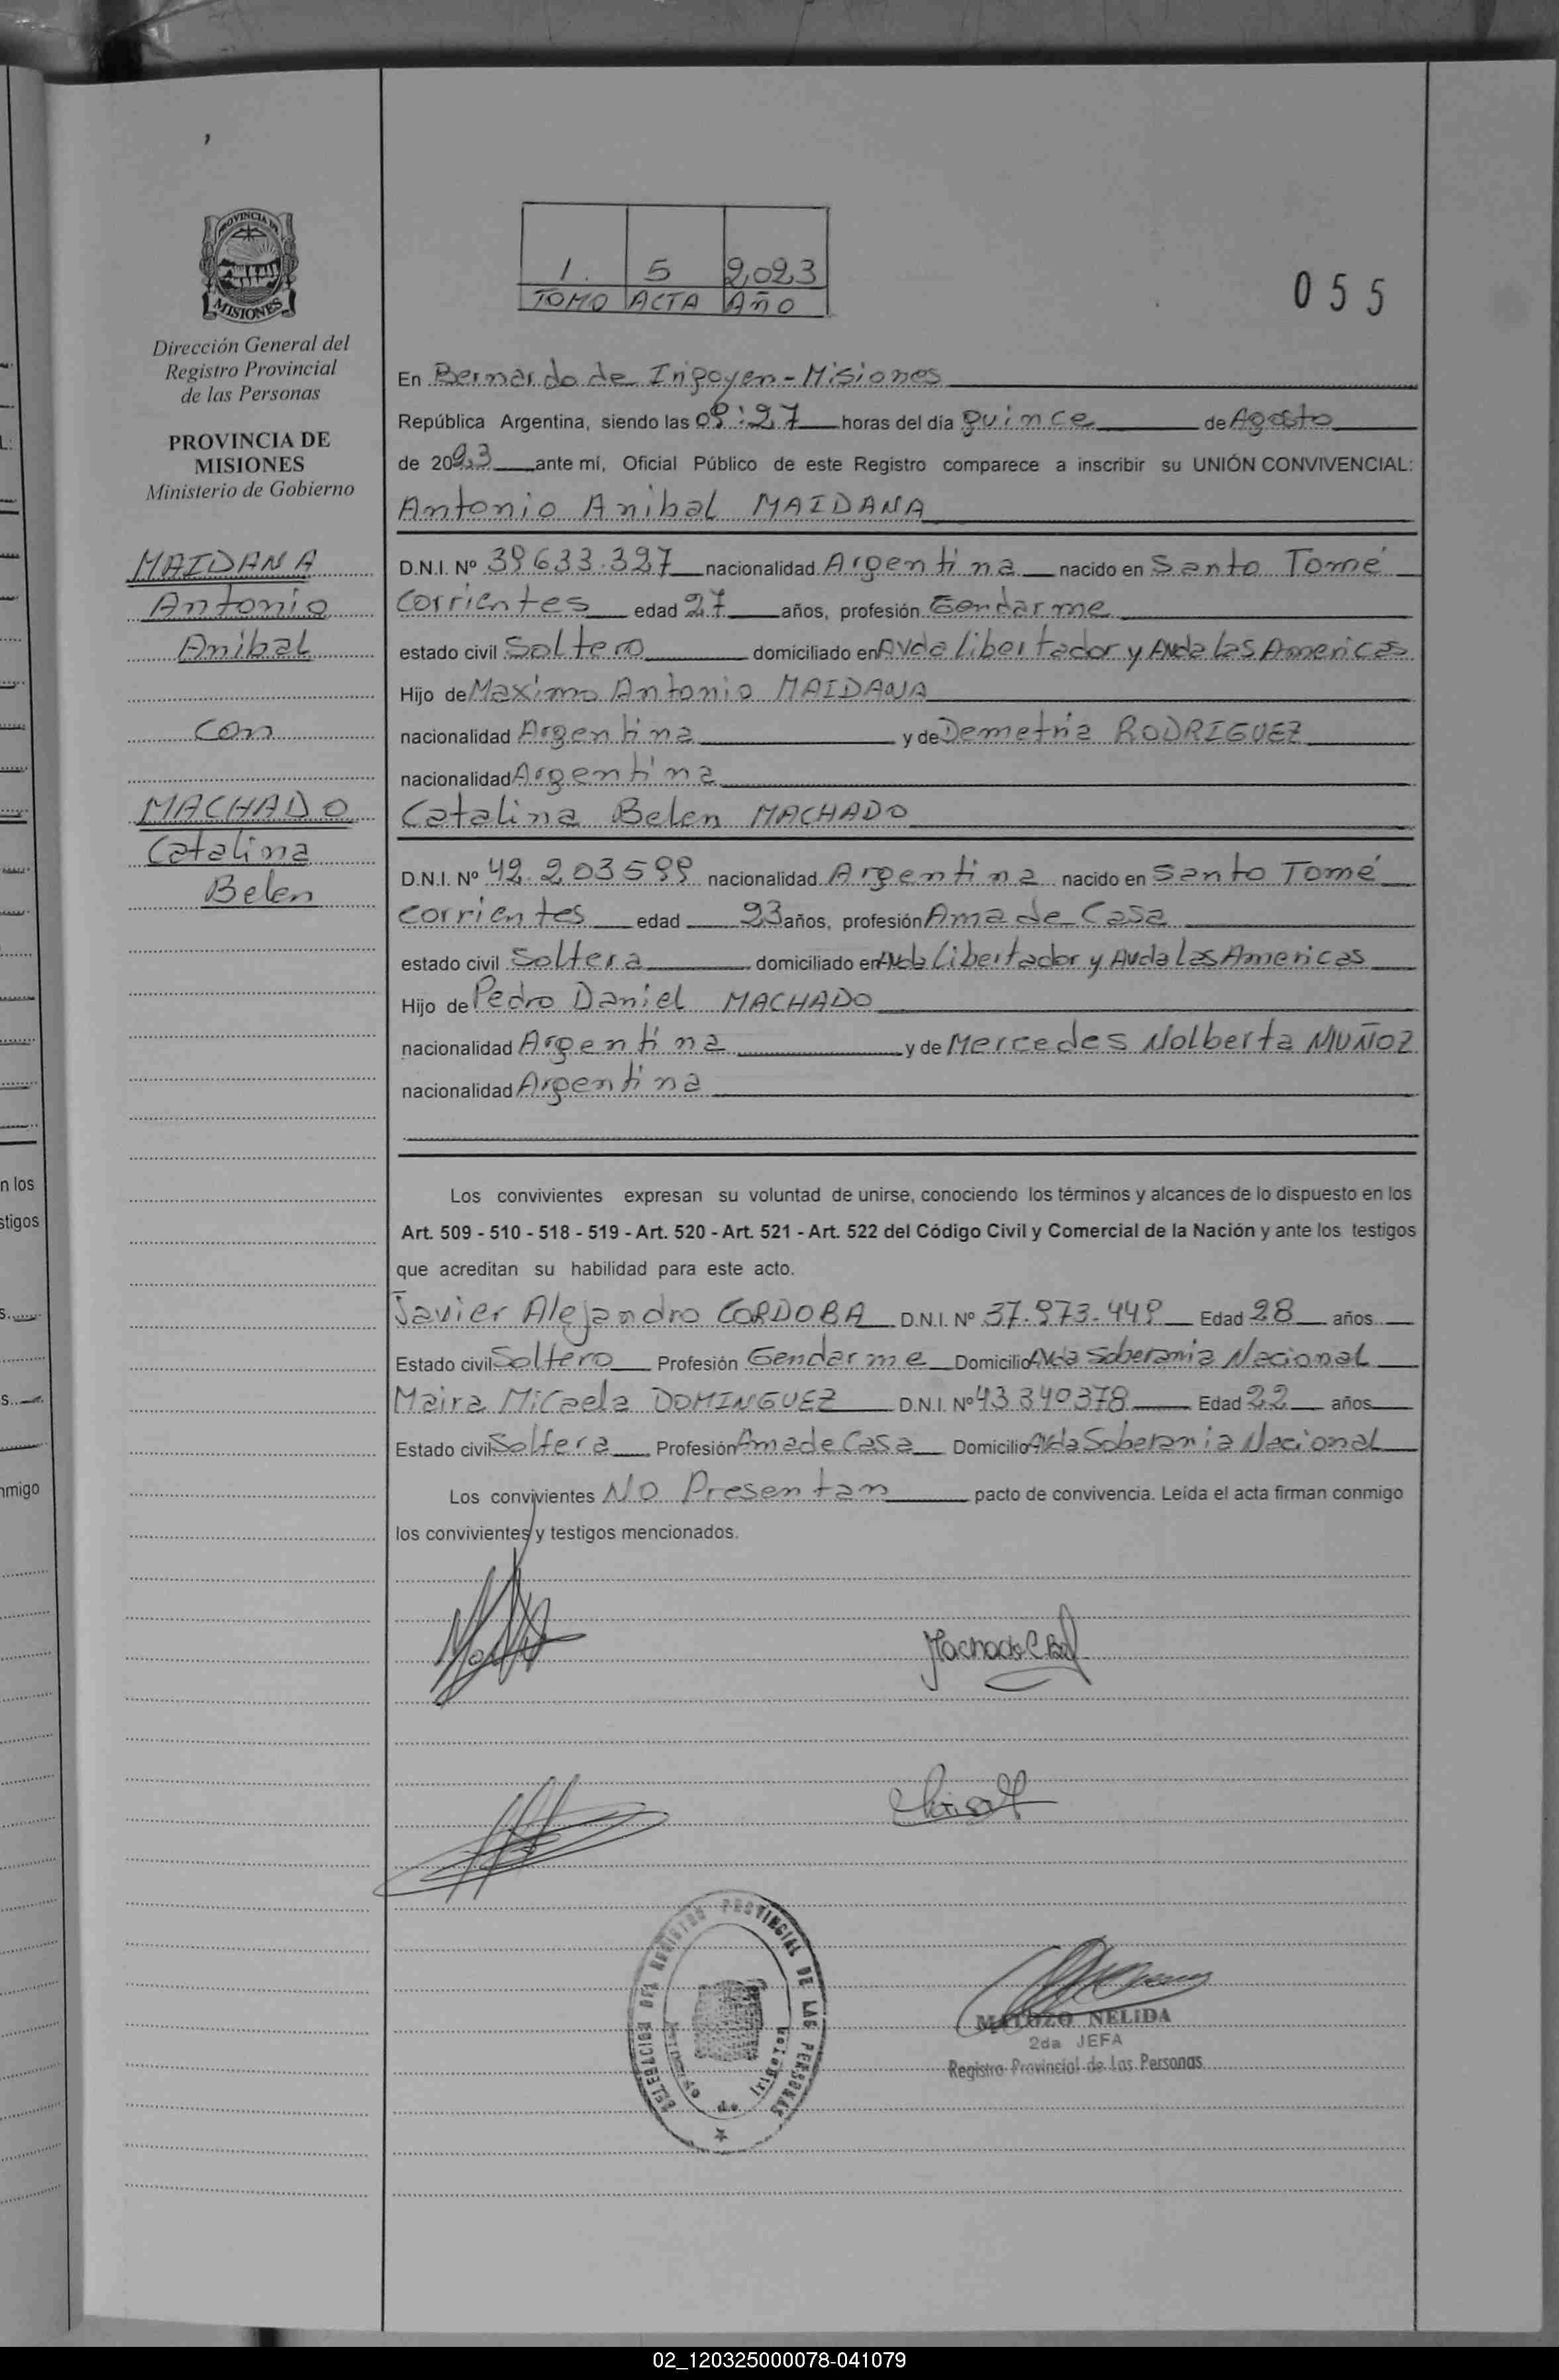 PROVINCIA DE
MISIONES
Dirección General del
Registro Provincial
de las Personas
PROVINCIA DE
MISIONES
Ministerio de Gobierno
MAIDANA
Antonio
Anibal
con
MACHADO
Catalina
Belen
1. 5 2023
TOMO ACTA AÑO
055
En Bernardo de Irigoyen - Misiones
República Argentina, siendo las 09:27 horas del día quince de Agosto
de 2023 ante mí, Oficial Público de este Registro comparece a inscribir su UNIÓN CONVIVENCIAL:
Antonio Anibal MAIDANA
D.N.I. Nº 39.633.327 nacionalidad Argentina nacido en Santo Tomé
Corrientes edad 27 años, profesión Gendarme
estado civil Soltero domiciliado en Avda Libertador y Avda Las Americas
Hijo de Maximo Antonio MAIDANA
nacionalidad Argentina y de Demetria RODRIGUEZ
nacionalidad Argentina
Catalina Belen MACHADO
D.N.I. Nº 42.203599 nacionalidad Argentina nacido en Santo Tomé
Corrientes edad 23 años, profesión Ama de Casa
estado civil Soltera domiciliado en Avda Libertador y Avda Las Americas
Hijo de Pedro Daniel MACHADO
nacionalidad Argentina y de Mercedes Nolberta MUÑOZ
nacionalidad Argentina
Los convivientes expresan su voluntad de unirse, conociendo los términos y alcances de lo dispuesto en los
Art. 509 - 510 - 518 - 519 - Art. 520 - Art. 521 - Art. 522 del Código Civil y Comercial de la Nación y ante los testigos
que acreditan su habilidad para este acto.
Javier Alejandro CORDOBA D.N.I. Nº 37.973.449 Edad 28 años
Estado civil Soltero Profesión Gendarme Domicilio Avda Soberania Nacional
Maira Micaela DOMINGUEZ D.N.I. Nº 43340378 Edad 22 años
Estado civil Soltera Profesión Ama de Casa Domicilio Avda Soberania Nacional
Los convivientes NO Presentan pacto de convivencia. Leída el acta firman conmigo
los convivientes y testigos mencionados.
Machado C Bel
DELEGACION DEL REGISTRO PROVINCIAL DE LAS PERSONAS
MATOZO NELIDA
2da JEFA
Registro Provincial de Las Personas
n los
stigos
nmigo
02_120325000078-041079